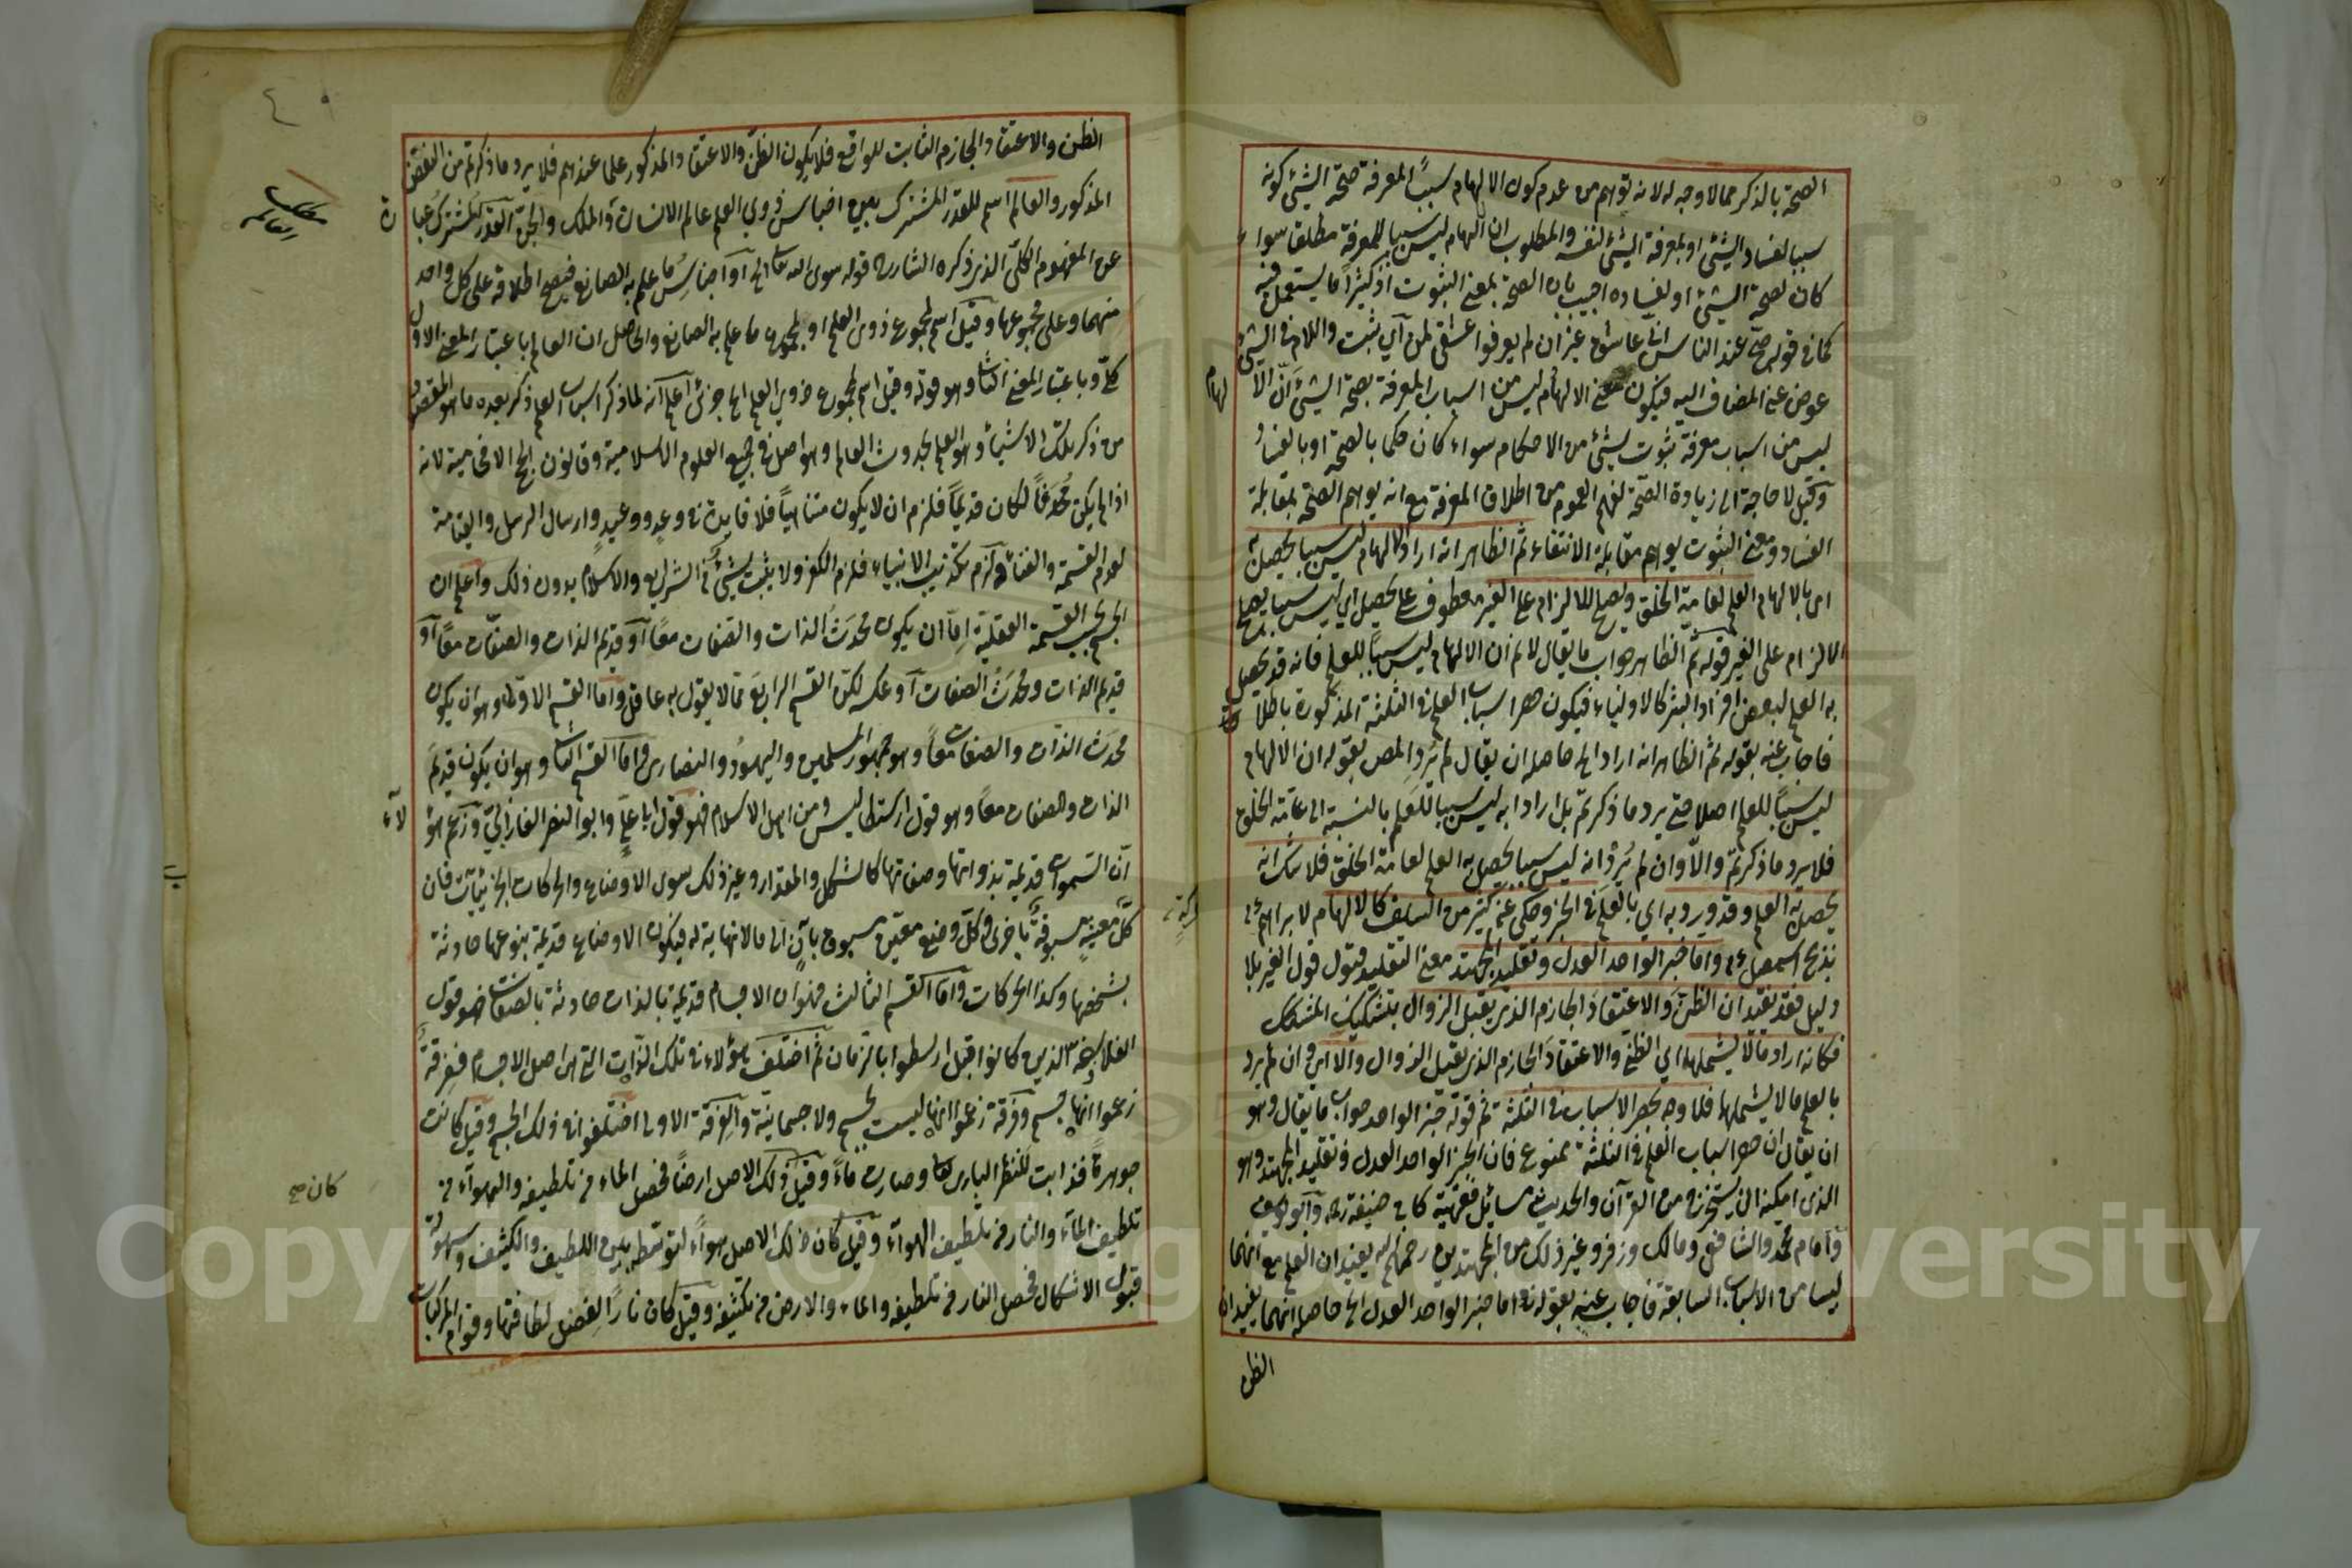 الصحة بالذكر مما لا وجه له لانه توهم من عدم كون الالهام سببًا لمعرفة صحة الشيئ كونه
سببا لفساد الشيئ او لمعرفة الشيئ لنفسه والمطلوب ان الالهام ليس سببا للمعرفة مطلقا سواء
كان لصحة الشيئ او لفساده اجيب بان الصحة بمعنى الثبوت اذ كثيرًا ما يستعمل فيه
كما في قوله صح عند الناس اني عاشق غير ان لم يعرفوا عشقي لمن اي ثبت واللام في الشيئ
عوض عن المضاف اليه فيكون معنى الالهام ليس من اسباب المعرفة بصحة الشيئ انّ الا
لهام
ليس من اسباب معرفة ثبوت شيئ من الاحكام سواء كان حكما بالصحة او بالفساد
وقيل لا حاجة الى زيادة الصحة لفهم العموم من اطلاق المعرفة مع انه يوهم الصحة بمقابلة
الفساد ومعنى الثبوت يوهم مقابله الانتفاء ثم الظاهر انه اراد ان الالهام ليس سببا يحصل به
اي بالالهام العلم لعامة الخلق ويصلح للالزام على الغير معطوف على يحصل اي ليس سببا يصلح
الالزام على الغير قوله ثم الظاهر جواب ما يقال لا نم ان الالهام ليس سببًا للعلم فانه قد يحصل
به العلم لبعض افراد البشر كالاولياء فيكون حصر اسباب العلم في الثلثة المذكورة باطلا
فاجاب عنه بقوله ثم الظاهر انه اراد الخ حاصله ان يقال لم يُرِد المص بقوله ان الالهام
ليس سببًا للعلم اصلا حتى يرد ما ذكرتم بل اراد به ليس سببا للعلم بالنسبة الى عامة الخلق
فلا يرد ما ذكرتم والّا وان لم يُرد انه ليس سببا يحصل به العلم لعامة الخلق فلا شك انه
يحصل به العلم وقد ورد به اي بالعلم في الخبر وحكي عن كثير من السلف كالالهام لابراهيم عم
بذبح اسمعيل عم واما خبر الواحد العدل وتقليد المجتهد معنى التقليد قبول قول الغير بلا
دليل فقد يفيد ان الظنّ والاعتقاد الجازم الذي يقبل الزوال بتشكيك المشكك
فكانه اراد ما لا يشملهما اي الظن والاعتقاد الجازم الذي يقبل الزوال والا اي وان لم يرد
بالعلم ما لا يشملهما فلما وجه لحصر الاسباب في الثلثة ثم قوله خبر الواحد جواب ما يقال وهو
ان يقال ان حصر اسباب العلم في الثلثة ممنوع فان الخبر الواحد العدل وتقليد المجتهد وهو
الذي امكنه ان يستخرج من القرآن والحديث مسائل فقهية كابي حنيفة رح وابو يوسف
وامام محمد والشافعي ومالك وزفر وغير ذلك من المجتهدين رحمهم الله يفيدان العلم مع انهما
ليسا من الاسباب السابقة فاجاب عنه بقوله واما خبر الواحد العدل الخ حاصله انهما يفيدان
الظن
الظن والاعتقاد الجازم الثابت للواقع فلا يكون الظن والاعتقاد المذكور علما عندهم فلا يرد ما ذكرتم من النقض
المذكور والعالم اسم للقدر المشترك بين اجناس ذوي العلم عالم الانسان والملك والجن القدر المشترك عبا
عن المفهوم الكلّي الذي ذكره الشارح قوله سوى الله تعا الخ او اجناس ما علم به الصانع فيصح اطلاقه على كل واحد
منهما وعلى مجموعها وقيل اسم لمجموع ذوي العلم او لمجموع ما علم به الصانع والحاصل ان العالم باعتبار المعنى الاول
كلّي وباعتبار المعنى الثاني وهو قوله وقيل اسم لمجموع ذوي العلم الخ جزئي اعلم انه لما ذكر اسباب العلم ذكر بعده ما هو المقصود
من ذكر تلك الاشياء وهو العلم بحدوث العالم وهو اصل في جميع العلوم الاسلامية وقانون الحج الافحامية لانه
اذا لم يكن مُحدثًا لكان قديمًا فلزم ان لا يكون متناهيًا فلا فايدة في وعدٍ ووعيدٍ وارسال الرسل والقيامة
لعدم القسمة والفناء ولزم تكذيب الانبياء فلزم الكفر ولا يثبت شيئ في الشرايع والاسلام بدون ذلك واعلم ان
الجسم بحسب القسمة العقلية امّا ان يكون محدَث الذات والصفات معًا او قديم الذات والصفات معًا او
قديم الذات ومحدَث الصفات او عكسه لكن القسم الرابع ممّا لا يقول به عاقل وامّا القسم الاول وهو ان يكون
محدَث الذات والصفات معًا وهو جمهور المسلمين واليهود والنصارى وامّا القسم الثاني وهو ان يكون قديم
الذات والصفات معا وهو قول ارسطاليس ومن اهل الاسلام فهو قول ابا علي وابو النصر الفارابي وزعم هؤ
لاء
انّ السموات قديمة بذواتها وصفاتها كالشكل والمقدار وغير ذلك سوى الاوضاع والحركات الجزئيات فان
كلّ معين مسبوقة باخرى وكل وضع معين مسبوق بآخر الى ما لا نهاية له فيكون الاوضاع قديمة بنوعها حادثة
بشخصها وكذا الحركات وامّا القسم الثالث فهو ان الاجسام قديمة بالذات حادثة بالصفات فهو قول
الفلاسفة الذين كانوا قبل ارسطوا بالزمان ثم اختلف هؤلاء في تلك الذوات التي هي اصل الاجسام ففرقةٌ
زعموا انها جسم وفرقة زعموا انها ليست بجسم ولا جسمانيّة والفرقة الاولى اختلفوا في ذلك الجسم وقيل كانت
جوهرةً فذابت للنظر الباري تعا وصارت ماءً وقيل ذلك الاصل ارضًا فحصل الماء في تلطيفه والهواء في
تلطيف الماء والنار في تلطيف الهواء وقيل كان ذلك الاصل هواءً لتوسطه بين اللطيف والكثيف وسهولة
قبول الاشكال فحصل النار في تلطيفه والماء والارض في تكثيفه وقيل كان نارًا لفضل لطافتها وقوام المركبات
كان صح
Copyright © King Saud University